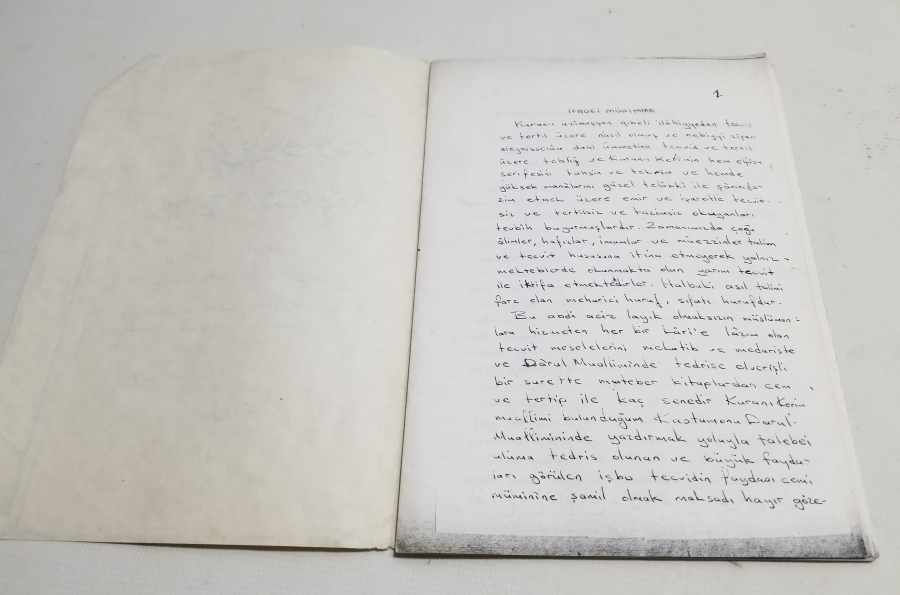 1
İFADEİ MÜHİMME
Kuranı azimuşşan gibeli ilâhiyyeden tecvid
ve tertil üzere nazil olmuş ve nebiyyi zişan
aleyhisselâm dahi ümmetine tecvid ve tertil
üzere tebliğ ve Kuranı Kerimin hem elfazı
şerifesini tahsin ve tekrim ve hemde
yüksek manâlarını güzel telâkki ile
zim etmek üzere emir ve işaretle tecvit-
siz ve tertilsiz ve tazimsiz okuyanları
tevbih buyurmuşlardır. Zamanımızda çoğu
âlimler, hafızlar, imamlar ve müezzinler talim
ve tecvit hususuna itina etmeyerek yalnız
mekteblerde okunmakta olan yarım tecvit
ile iktifa etmektedirler. Halbuki asıl talimi
farz olan meharici huruf, sıfatı hurufdur.
Bu abdi aciz layık olmaksızın müslüman-
lara hizmeten her bir kâri'e lâzım olan
tecvit meselelerini mekatib ve medariste
ve Dârul Muallimînde tedrise elverişli
bir surette muteber kitaplardan cem
ve tertip ile kaç senedir Kuranı Kerim
muallimi bulunduğum Kastamonu Darul-
Muallimininde yazdırmak yoluyla talebei
ulüma tedris olunan ve büyük fayda-
ları görülen işbu tecvidin faydası cemi
müminine şamil olmak maksadı hayır göze-